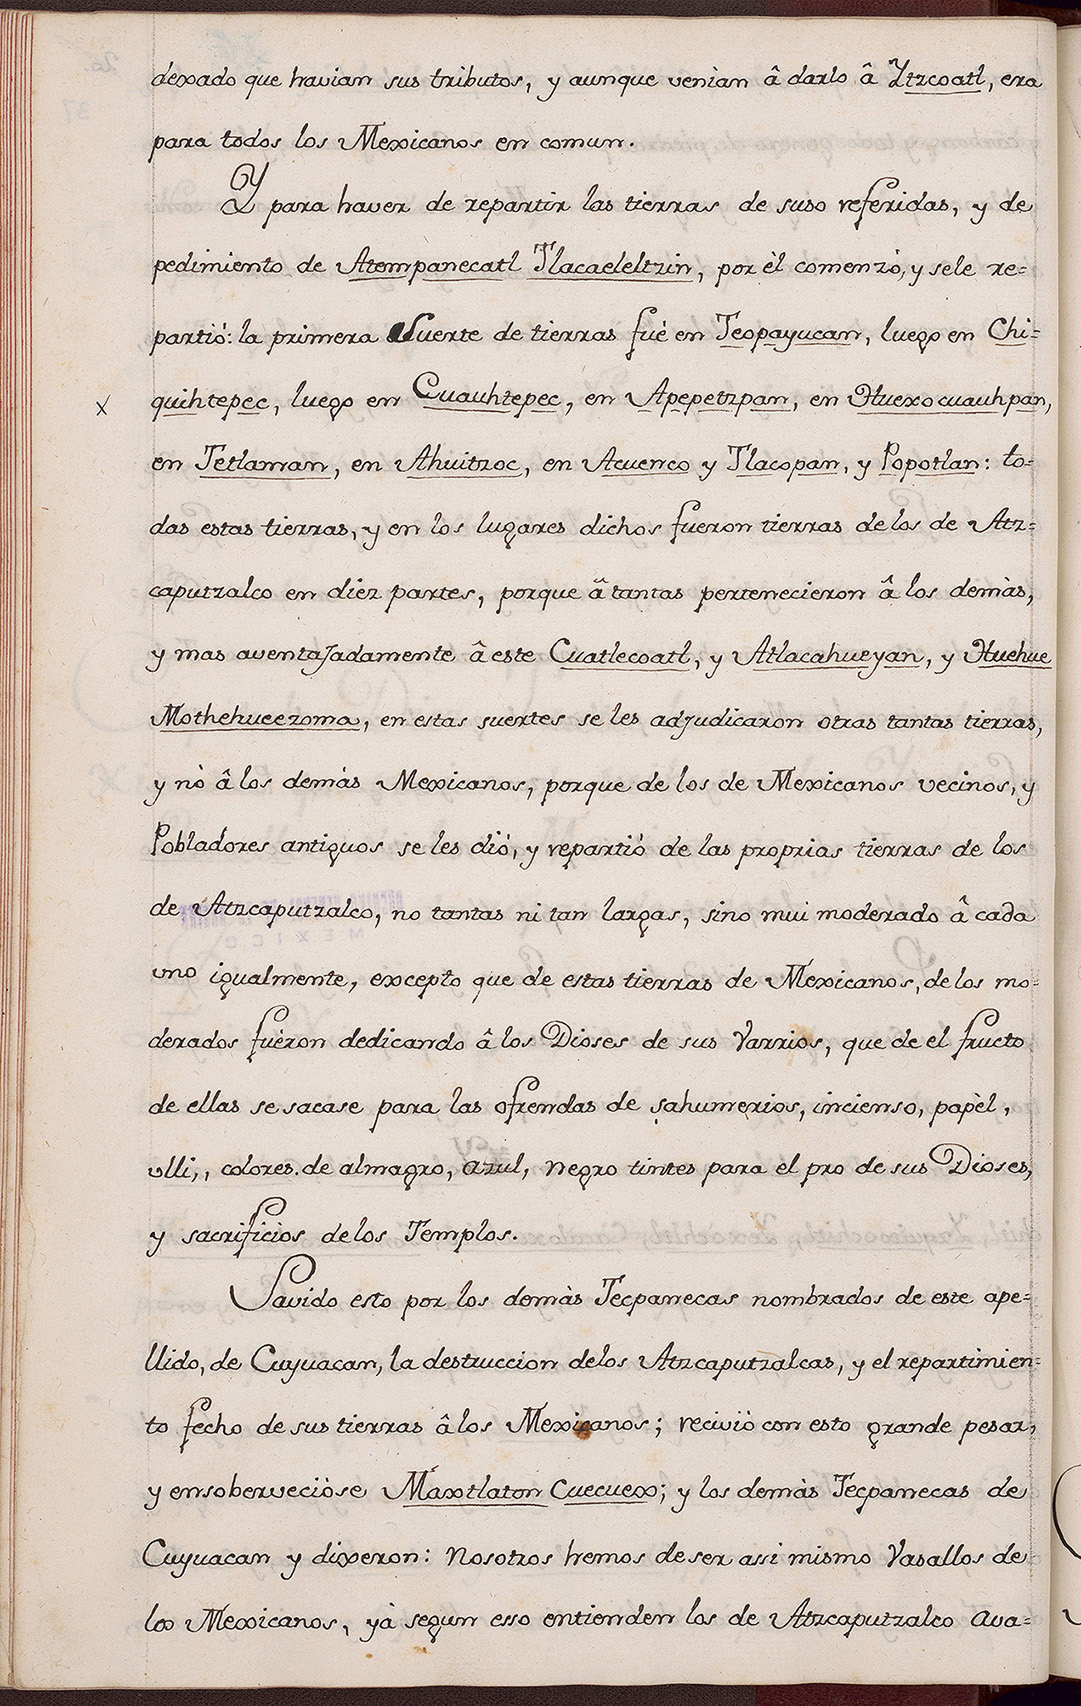 dexado que havian sus tributos, y aunque venian â darlo â Ytzcoatl, era
para todos los Mexicanos en comun.
Y para haver de repartir las tierras de suso referidas, y de
pedimiento de Atempanecatl Tlacaeleltzin, por èl comenzò, y sele re=
partiò: la primera suerte de tierras fuè en Teopayucan, luego en Chi=
x quihtepec, luego en Cuauhtepec, en Apepetzpan, en Huexocuauhpan,
en Tetlaman, en Ahuitzoc, en Acuenco y Tlacopan, y Popotlan: to=
das estas tierras, y en los lugares dichos fueron tierras delos de Atz=
caputzalco en diez partes, porque â tantas pertenecieron â los demàs,
y mas aventajadamente â este Cuatlecoatl, y Atlacahueyan, y Huehue
Mothehucezoma, en estas suertes se les adjudicaron otras tantas tierras,
y nò â los demàs Mexicanos, porque de los de Mexicanos vecinos, y
Pobladores antiguos se les diò, y repartiò de las proprias tierras de los
de Atzcaputzalco, no tantas ni tan largas, sino mui moderado â cada
uno igualmente, excepto que de estas tierras de Mexicanos, de los mo=
derados fuèron dedicando â los Dioses de sus Varrios, que de el fructo
de ellas se sacase para las ofrendas de sahumerios, incienso, papèl,
ulli,, colores. de almagro, azul, negro tintes para el pro de sus Dioses,
y sacrificios delos Templos.
Savido esto por los demàs Tecpanecas nombrados de este ape=
llido, de Cuyuacan, la destruccion delos Atzcaputzalcas, y el repartimien=
to fecho de sus tierras â los Mexicanos; reciviò con esto grande pesar,
y ensoberveciòse Maxtlaton Cuecuex; y los demàs Tecpanecas de
Cuyuacan y dixeron: Nosotros hemos deser assi mismo Vasallos de
los Mexicanos, yà segun esso entienden los de Atzcaputzalco ava=